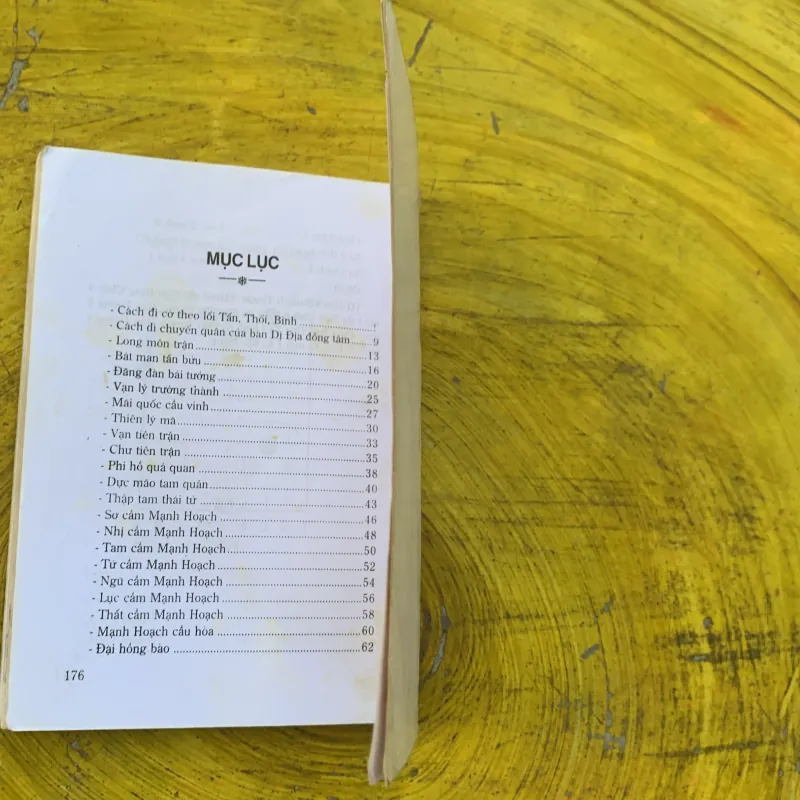 MỤC LỤC
- Cách đi cờ theo lối Tấn, Thối, Bình ........ 7
- Cách di chuyển quân của bàn Dị Địa đồng tâm ...... 9
- Long môn trận ........ 13
- Bát man tấn bửu ........ 16
- Đăng đàn bái tướng ........ 20
- Vạn lý trường thành ........ 25
- Mãi quốc cầu vinh ........ 27
- Thiên lý mã ........ 30
- Vạn tiên trận ........ 33
- Chư tiên trận ........ 35
- Phi hổ quá quan ........ 38
- Dực mão tam quân ........ 40
- Thập tam thái tử ........ 43
- Sơ cầm Mạnh Hoạch ........ 46
- Nhị cầm Mạnh Hoạch ........ 48
- Tam cầm Mạnh Hoạch ........ 50
- Tứ cầm Mạnh Hoạch ........ 52
- Ngũ cầm Mạnh Hoạch ........ 54
- Lục cầm Mạnh Hoạch ........ 56
- Thất cầm Mạnh Hoạch ........ 58
- Mạnh Hoạch cầu hòa ........ 60
- Đại hồng bào ........ 62
176